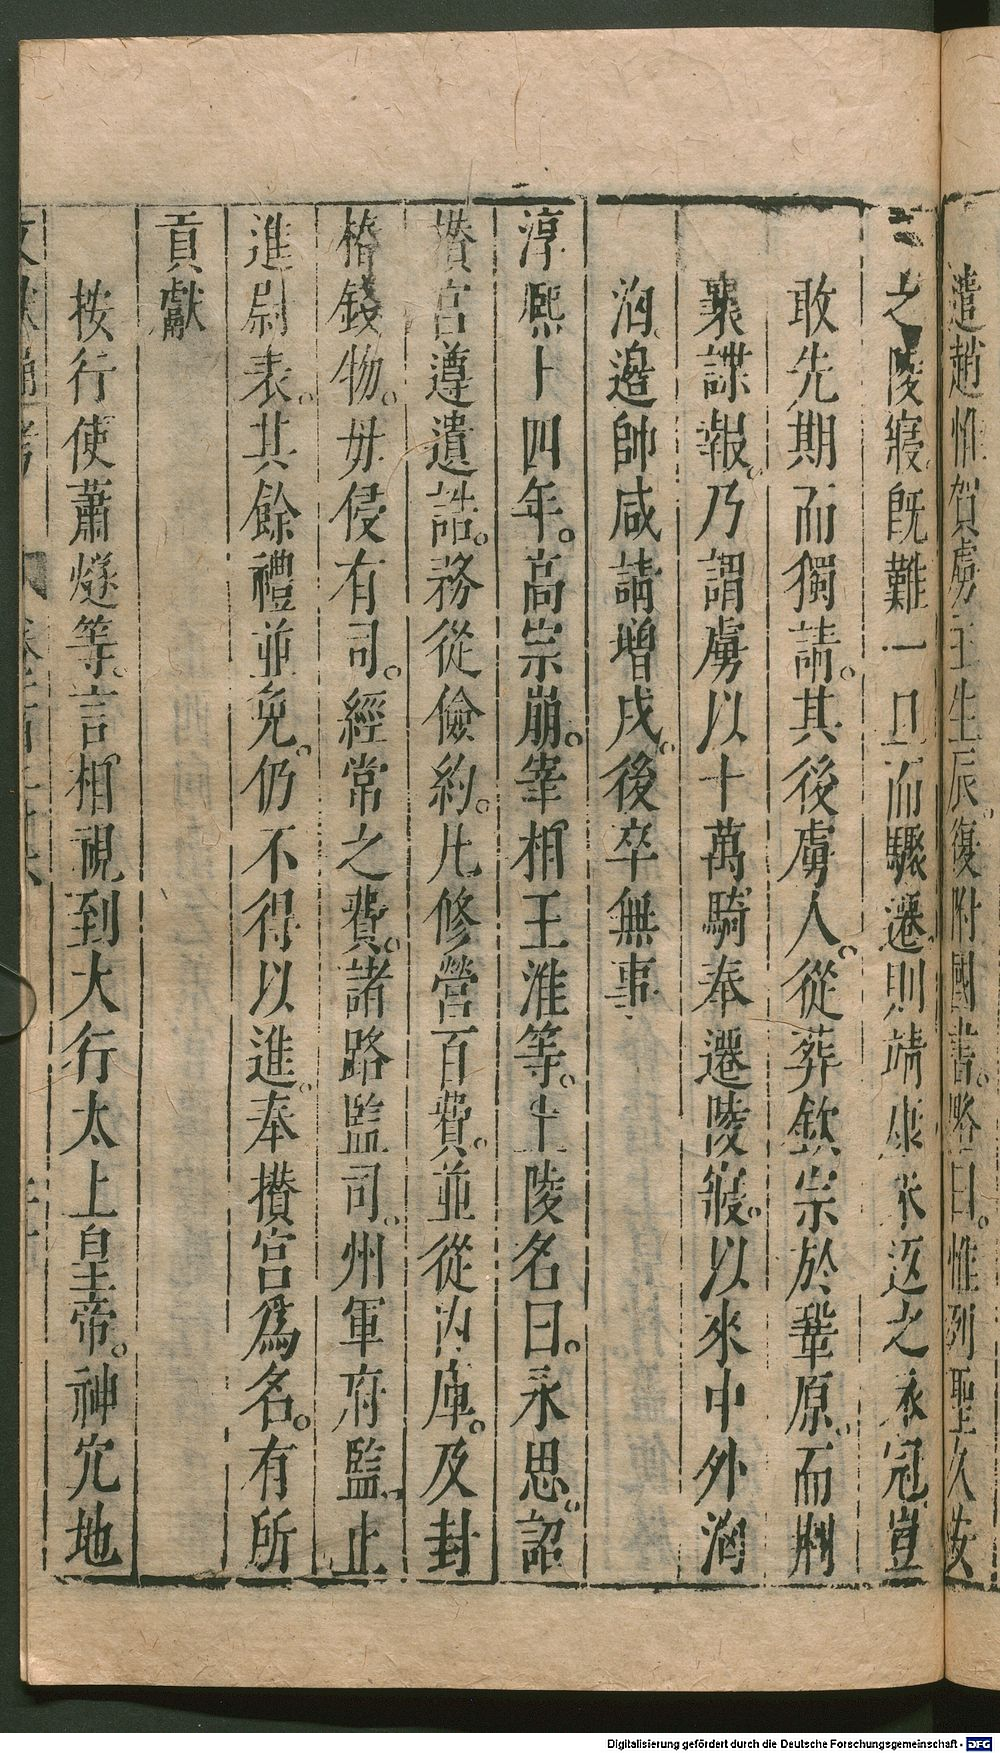 遣趙惟賀虜主生辰。復附國書。略曰。惟列聖久安
之陵寢。既難一旦而驟遷。則靖康未返之衣冠。豈
敢先期而獨請。其後虜人從葬欽宗於鞏原。而荆
襄諜報。乃謂虜以十萬騎奉遷陵寢。以來中外洶
洶。邊帥咸請增戍。後卒無事
淳熙十四年。高宗崩。宰相王淮等。上陵名曰。永思。詔
攅宮遵遺誥。務從儉約。凡修營百費。並從内庫。及封
樁錢物。毋侵有司。經常之費。諸路監司。州軍府監。止
進尉表。其餘禮並免。仍不得以進。奉攅宮爲名。有所
貢獻
按行使蕭燧等。言相視到大行太上皇帝。神穴地
文獻通考 卷一百二十六
Digitalisierung gefördert durch die Deutsche Forschungsgemeinschaft - DFG